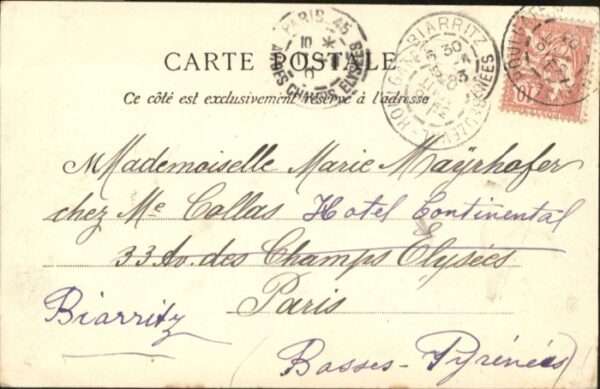 CARTE POSTALE
Ce côté est exclusivement réservé à l'adresse
PARIS 45
10
AV. DES CHAMPS ELYSÉES
BIARRITZ
30
10
Mademoiselle Marie Mayrhofer
chez Me Collas Hotel Continental
33 Av. des Champs Elysées
Paris
Biarritz
(Basses-Pyrénées)